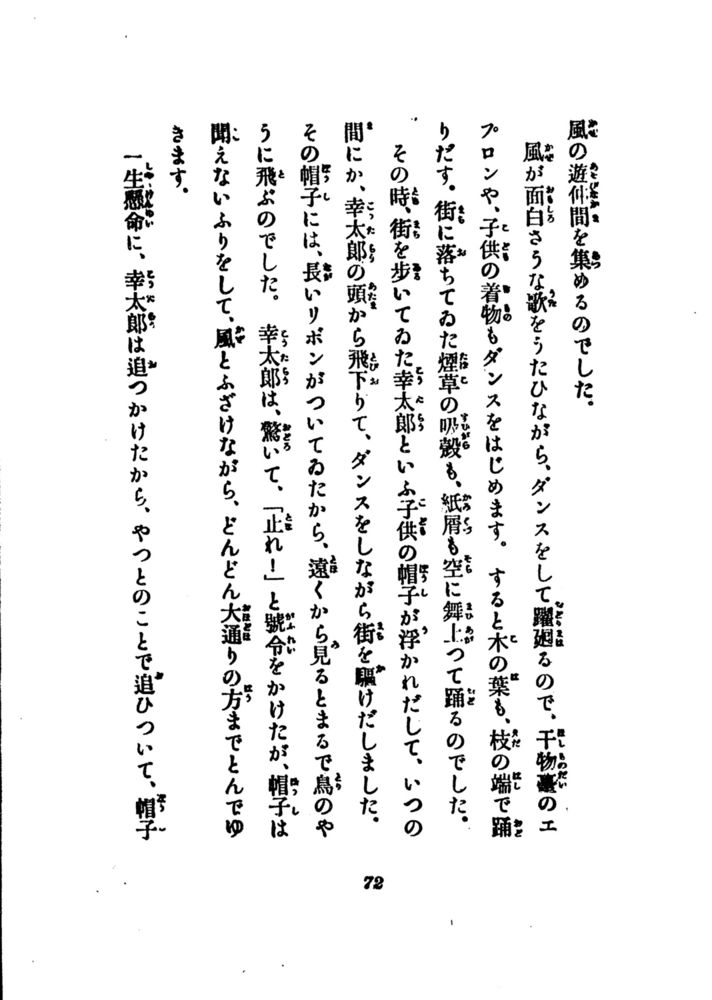 風の遊仲間を集めるのでした。
風が面白さうな歌をうたひながら、ダンスをして躍廻るので、干物臺のエ
プロンや、子供の着物もダンスをはじめます。すると木の葉も、枝の端で踊
りだす。街に落ちてゐた煙草の吸殼も、紙屑も空に舞上つて踊るのでした。
その時、街を歩いてゐた幸太郎といふ子供の帽子が浮かれだして、いつの
間にか、幸太郎の頭から飛下りて、ダンスをしながら街を驅けだしました。
その帽子には、長いリボンがついてゐたから、遠くから見るとまるで鳥のや
うに飛ぶのでした。幸太郎は、驚いて、「止れ！」と號令をかけたが、帽子は
聞えないふりをして、風とふざけながら、どんどん大通りの方までとんでゆ
きます。
一生懸命に、幸太郎は追つかけたから、やつとのことで追ひついて、帽子
72